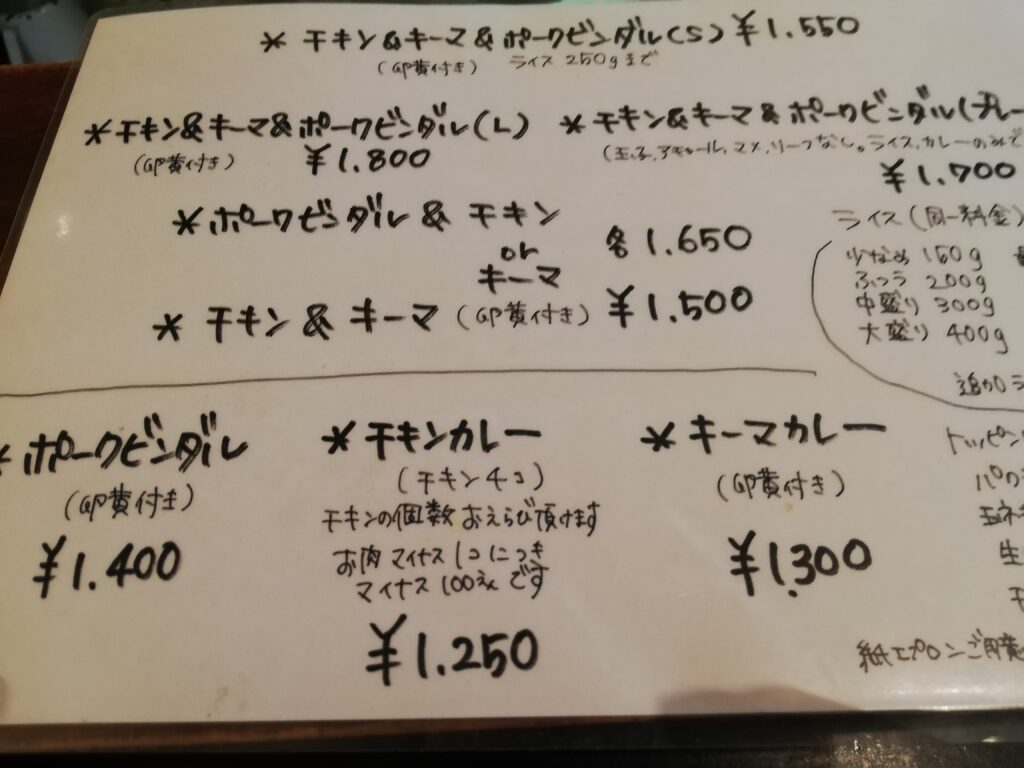 * チキン&キーマ&ポークビンダル(S) ¥1.550
(卵黄付き) ライス 250gまで
*チキン&キーマ&ポークビンダル(L)
(卵黄付き) ¥1.800
*チキン&キーマ&ポークビンダル(プレー
ライス、カレーのみで
¥1.700
*ポークビンダル & チキン
or
キーマ
各1.650
* チキン & キーマ (卵黄付き) ¥1.500
ライス(同一料金)
少なめ 150g
ふつう 200g
中盛り 300g
大盛り 400g
追加ラ
*ポークビンダル
(卵黄付き)
¥1.400
*チキンカレー
(チキン4コ)
チキンの個数 おえらび頂けます
お肉 マイナス 1コにつき
マイナス 100えんです
¥1.250
*キーマカレー
(卵黄付き)
¥1.300
トッピン
パク
玉ネ
生
チ
紙エプロンご用意